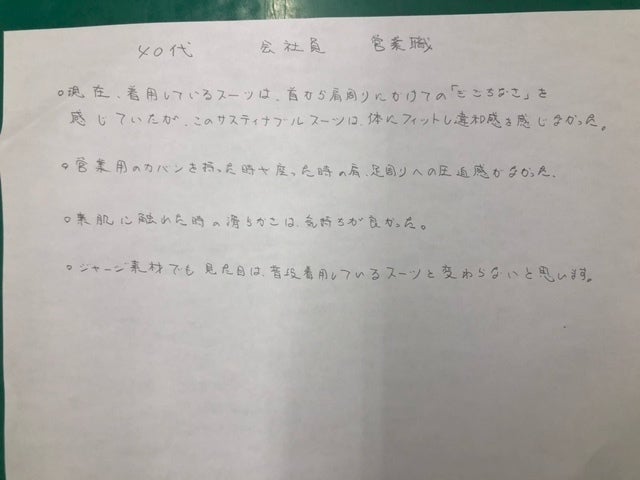 40代 会社員 営業職
○現在、着用しているスーツは、首から肩周りにかけての「ぎこちなさ」を
感じていたが、このサスティナブルスーツは、体にフィットし違和感を感じなかった。
○営業用のカバンを持った時や座った時の肩、足周りへの圧迫感がなかった、
○素肌に触れた時の滑らかさは、気持ちが良かった。
○ジャージ素材でも見た目は、普段着用しているスーツと変わらないと思います。